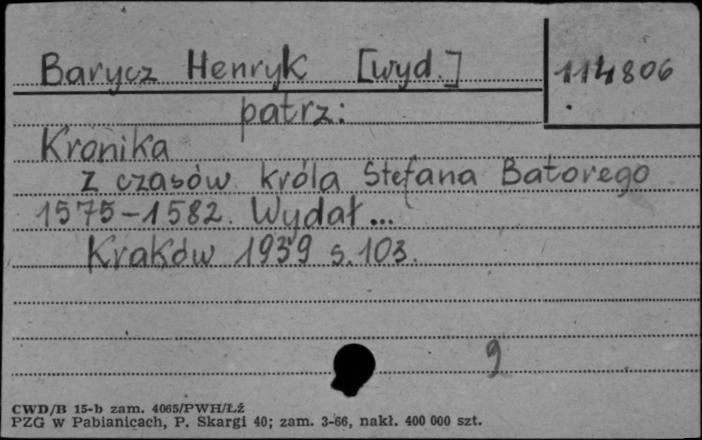 Barycz Henryk [wyd.]
114806
patrz:
Kronika
z czasów króla Stefana Batorego
1575-1582. Wydał...
Kraków 1939 s. 103.
9
CWD/B 15-b zam. 4065/PWH/Łź
PZG w Pabianicach, P. Skargi 40; zam. 3-66, nakł. 400 000 szt.